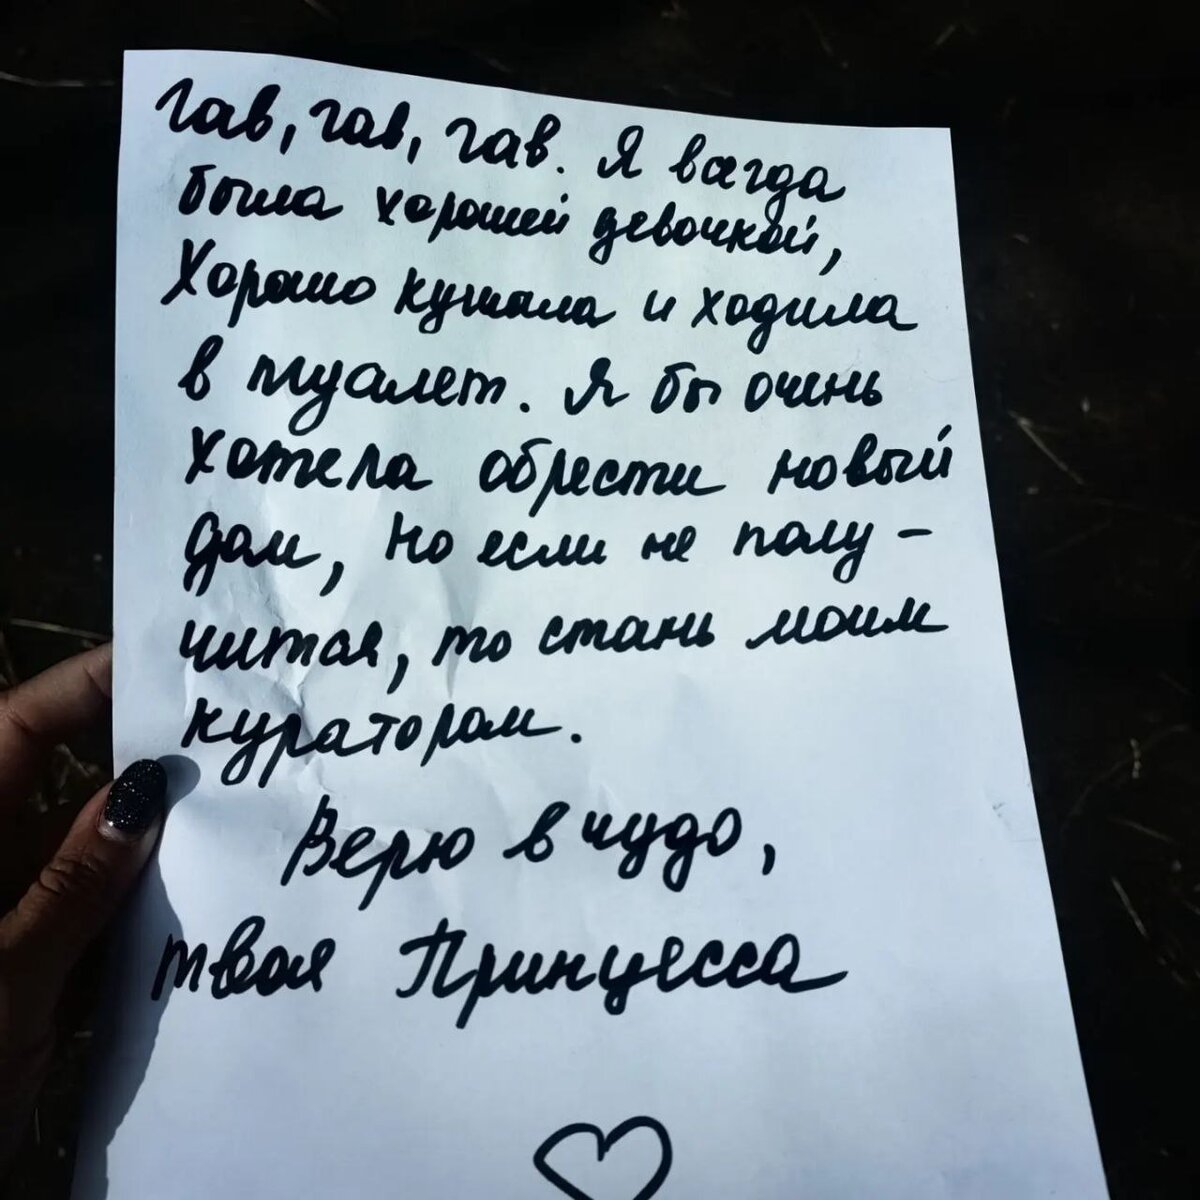 Гав, гав, гав. Я всегда
была хорошей девочкой,
Хорошо кушала и ходила
в туалет. Я бы очень
хотела обрести новый
дом, но если не полу-
чится, то стань моим
куратором.
Верю в чудо,
твоя Принцесса